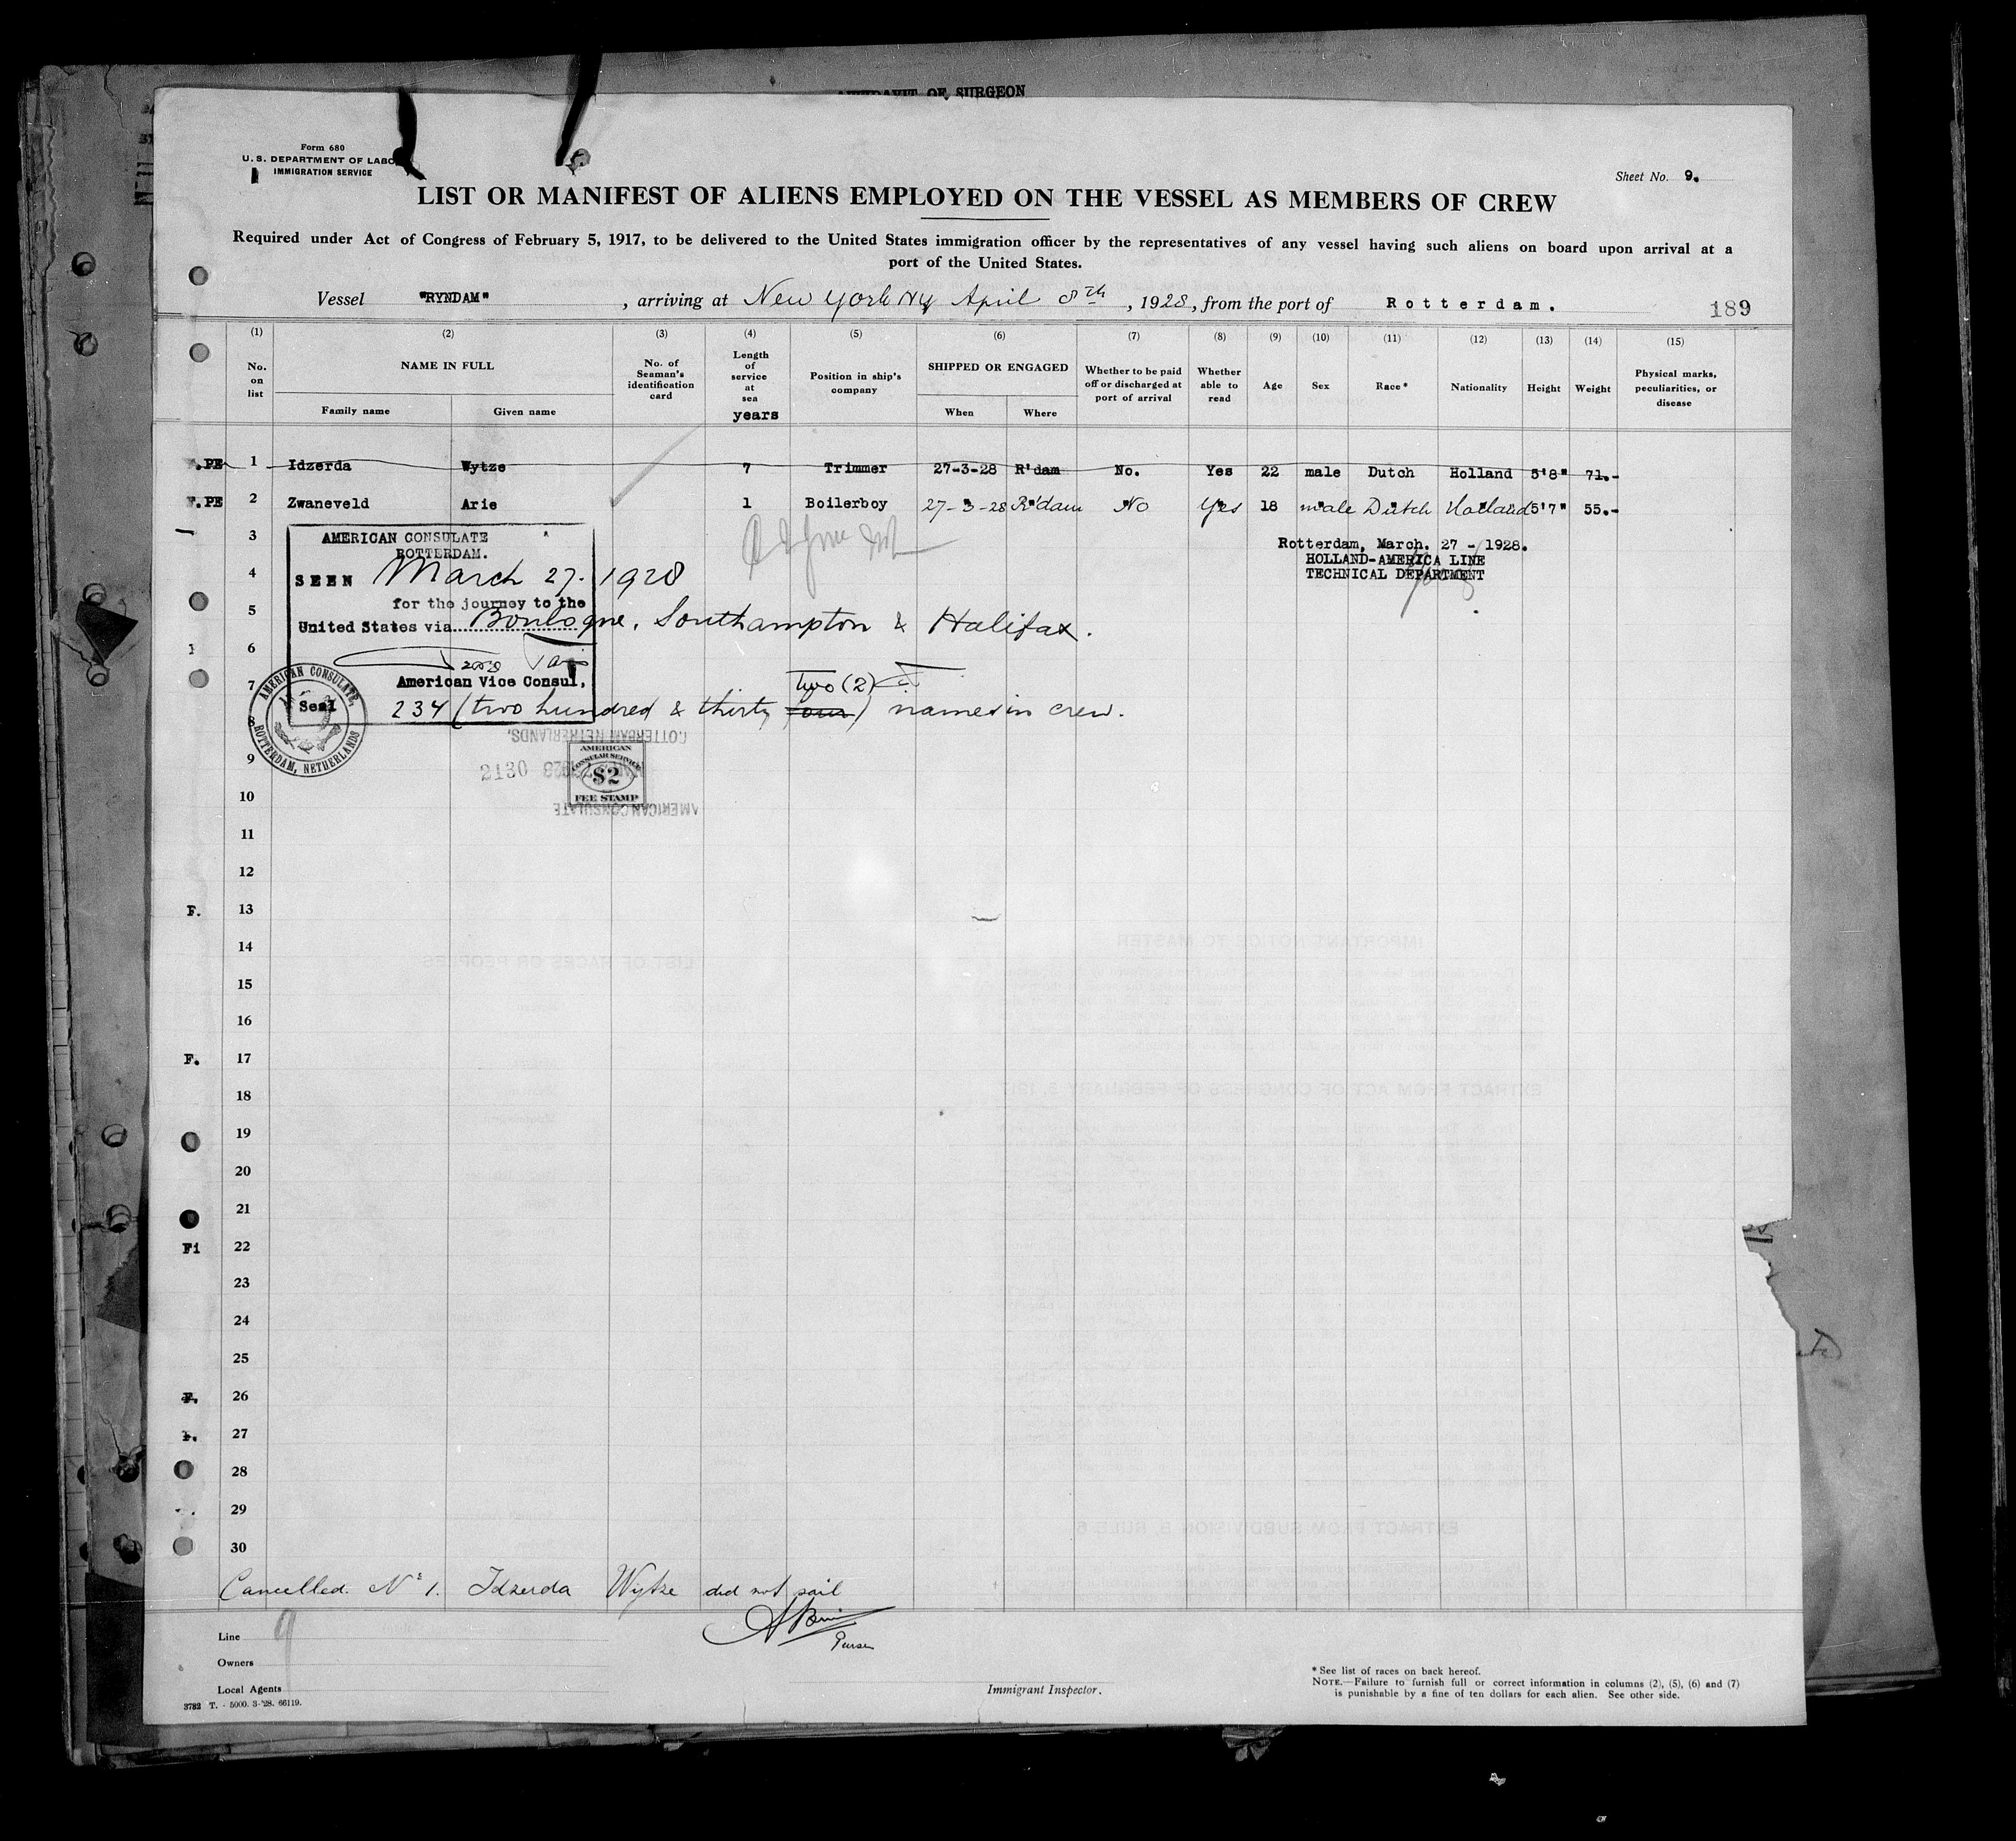 OF SURGEON
Form 680
U. S. DEPARTMENT OF LABO
IMMIGRATION SERVICE
Sheet No. 9.
LIST OR MANIFEST OF ALIENS EMPLOYED ON THE VESSEL AS MEMBERS OF CREW
Required under Act of Congress of February 5, 1917, to be delivered to the United States immigration officer by the representatives of any vessel having such aliens on board upon arrival at a
port of the United States.
Vessel "RYNDAM", arriving at New York NY April 8th, 1928, from the port of Rotterdam.
189
(1) (2) (3) (4) (5) (6) (7) (8) (9) (10) (11) (12) (13) (14) (15)
No. on list
NAME IN FULL
Family name Given name
No. of Seaman's identification card
Length of service at sea years
Position in ship's company
SHIPPED OR ENGAGED
When Where
Whether to be paid off or discharged at port of arrival
Whether able to read
Age Sex Race* Nationality Height Weight
Physical marks, peculiarities, or disease
.PE 1 Idzerda Wytze 7 Trimmer 27-3-28 R'dam No. Yes 22 male Dutch Holland 5'8" 71.-
F.PE 2 Zwaneveld Arie 1 Boilerboy 27-3-28 R'dam No Yes 18 male Dutch Holland 5'7" 55.-
3
AMERICAN CONSULATE
ROTTERDAM.
Rotterdam, March. 27 - 1928.
HOLLAND-AMERICA LINE
TECHNICAL DEPARTMENT
4
SEEN March 27. 1928
for the journey to the
5
United States via Boulogne, Southampton & Halifax.
6
7
American Vice Consul,
two (2)
Seal
8
234 (two hundred & thirty four) names in crew.
AMERICAN CONSULATE,
ROTTERDAM, NETHERLANDS
ROTTERDAM NETHERLANDS.
9
2130
AMERICAN
CONSULAR SERVICE
$2
FEE STAMP
AMERICAN CONSULATE
10
11
12
F. 13
14
15
16
F. 17
18
19
20
21
Fi 22
23
24
25
F. 26
27
28
29
30
Cancelled. No 1. Idzerda Wytze did not sail
Purser
Line
Owners
Local Agents
9
3782 T. - 5000. 3-'28. 66119.
Immigrant Inspector.
* See list of races on back hereof.
NOTE.—Failure to furnish full or correct information in columns (2), (5), (6) and (7)
is punishable by a fine of ten dollars for each alien. See other side.